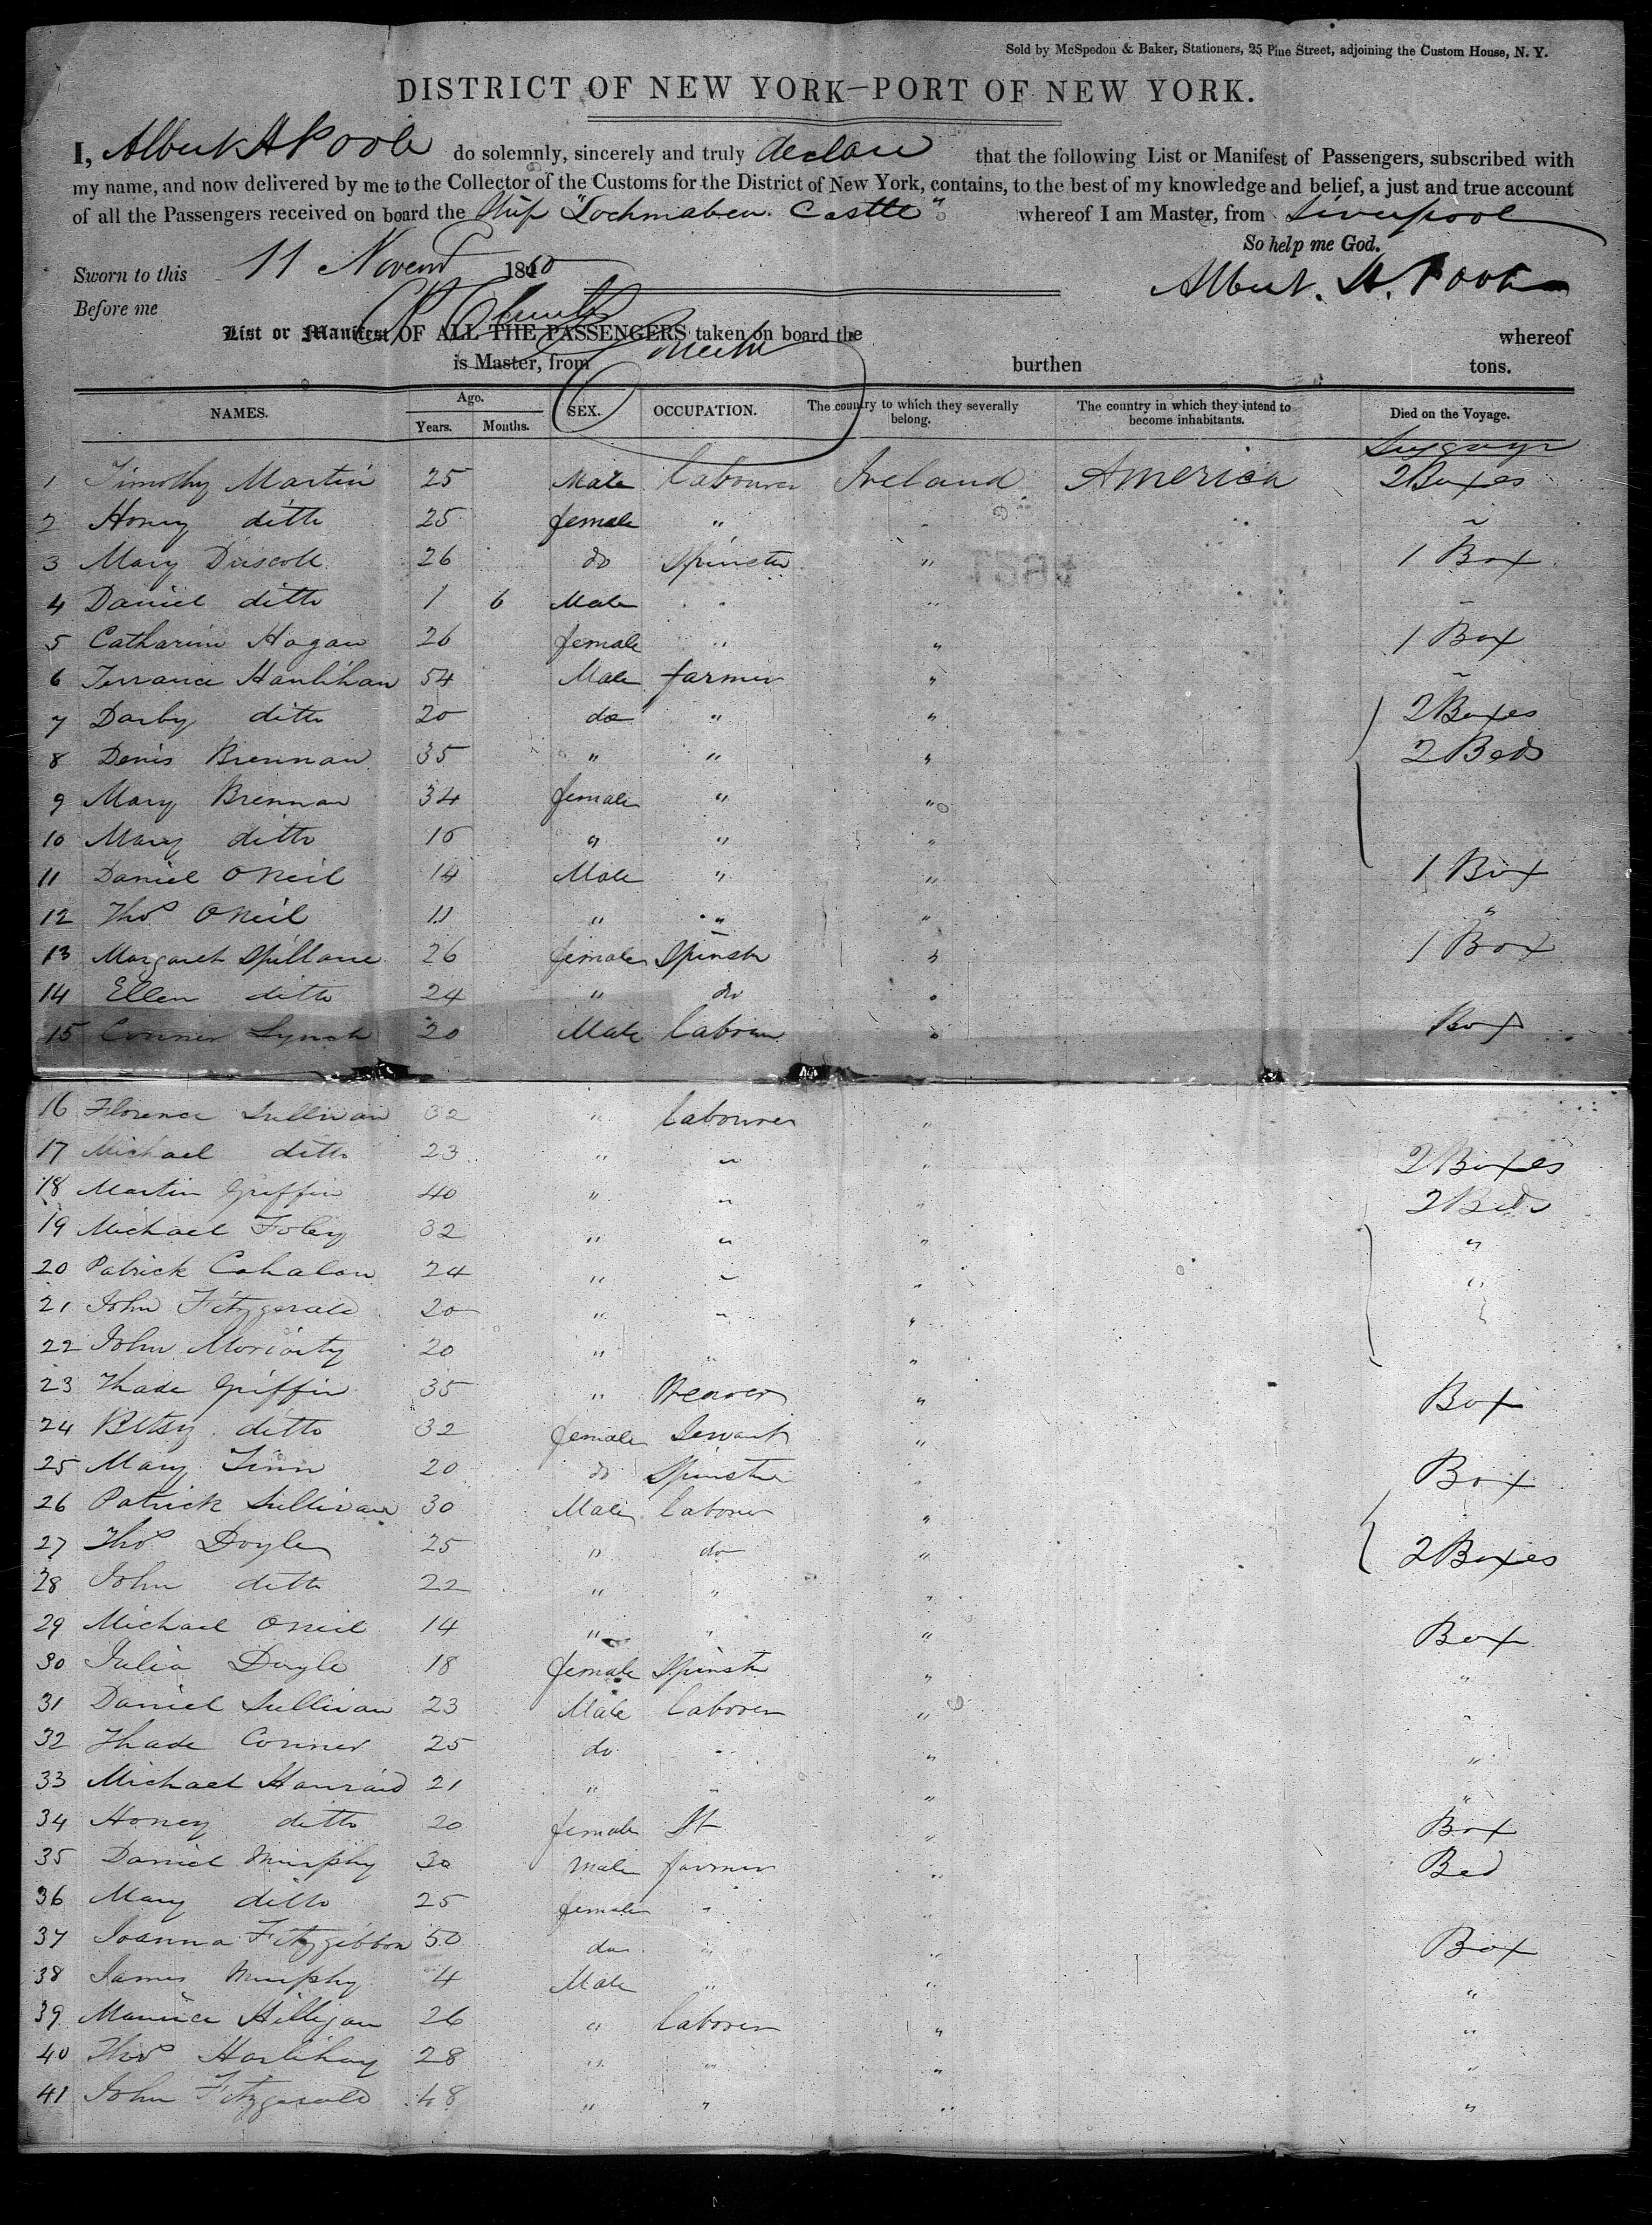 Sold by McSpedon & Baker, Stationers, 25 Pine Street, adjoining the Custom House, N. Y.
DISTRICT OF NEW YORK—PORT OF NEW YORK.
I, Albert H Poole do solemnly, sincerely and truly declare that the following List or Manifest of Passengers, subscribed with
my name, and now delivered by me to the Collector of the Customs for the District of New York, contains, to the best of my knowledge and belief, a just and true account
of all the Passengers received on board the Ship "Lochmaben Castle" whereof I am Master, from Liverpool
So help me God.
Sworn to this 11 Novem 18
Albert. H. Poole
Before me
List or Manifest OF ALL THE PASSENGERS taken on board the whereof
is Master, from burthen tons.
NAMES. Age. Years. Months. SEX. OCCUPATION. The country to which they severally belong. The country in which they intend to become inhabitants. Died on the Voyage.
Luggage
1 Timothy Martin 25 Male Labourer Ireland America 2 Boxes
2 Honey ditto 25 female " "
3 Mary Driscoll 26 do Spinster " 1 Box
4 Daniel ditto 1 6 Male " "
5 Catharine Hogan 26 female " " 1 Box
6 Terrance Hanlihan 54 Male farmer "
7 Darby ditto 20 do " " 2 Boxes
8 Denis Brennan 35 " " " 2 Beds
9 Mary Brennan 34 female " "
10 Mary ditto 16 " " "
11 Daniel ONeil 14 Male " " 1 Box
12 Thos ONeil 11 " " " "
13 Margaret Spillane 26 female Spinstr " 1 Box
14 Ellen ditto 24 " do "
15 Conner Lynch 20 Male Labourer " Box
16 Florence Sullivan 32 " Labourer "
17 Michael ditto 23 " " " 2 Boxes
18 Martin Griffin 40 " " " 2 Beds
19 Michael Foley 32 " " " "
20 Patrick Cahalan 24 " " " "
21 John Fitzgerald 20 " " "
22 John Moriarty 20 " " "
23 Thade Griffin 35 " Weaver " Box
24 Betsy ditto 32 female Servant "
25 Mary Finn 20 do Spinster " Box
26 Patrick Sullivan 30 Male Laborer "
27 Thos Doyle 25 " do " 2 Boxes
28 John ditto 22 " " "
29 Michael ONeil 14 " " " Box
30 Julia Doyle 18 female Spinstr " "
31 Daniel Sullivan 23 Male Laborer " "
32 Thade Conner 25 do " " "
33 Michael 21 " " " "
34 Honey ditto 20 female St " Box
35 Daniel Murphy 30 Male farmer " Bed
36 Mary ditto 25 female " "
37 Joanna Fitzgibbon 50 do " " Box
38 James Murphy 4 Male " " "
39 Maurice Hilligan 26 " Laborer " "
40 Thos 28 " " " "
41 John Fitzgerald 48 " " " "